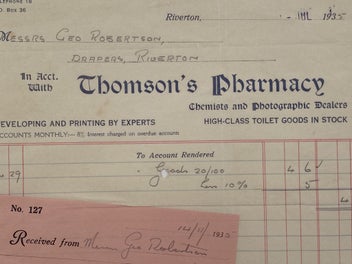 TELEPHONE 18
P.O. BOX 36
Riverton, - JUL 1935
MESSRS GEO ROBERTSON,
DRAPERS, RIVERTON
In Acct. With Thomson's Pharmacy
Chemists and Photographic Dealers
DEVELOPING AND PRINTING BY EXPERTS HIGH-CLASS TOILET GOODS IN STOCK
ACCOUNTS MONTHLY:— Interest charged on overdue accounts
To Account Rendered
29 Goods 4 6
Less 10% 5
4
No. 127
14/ 1935
Received from Messrs Geo Robertson